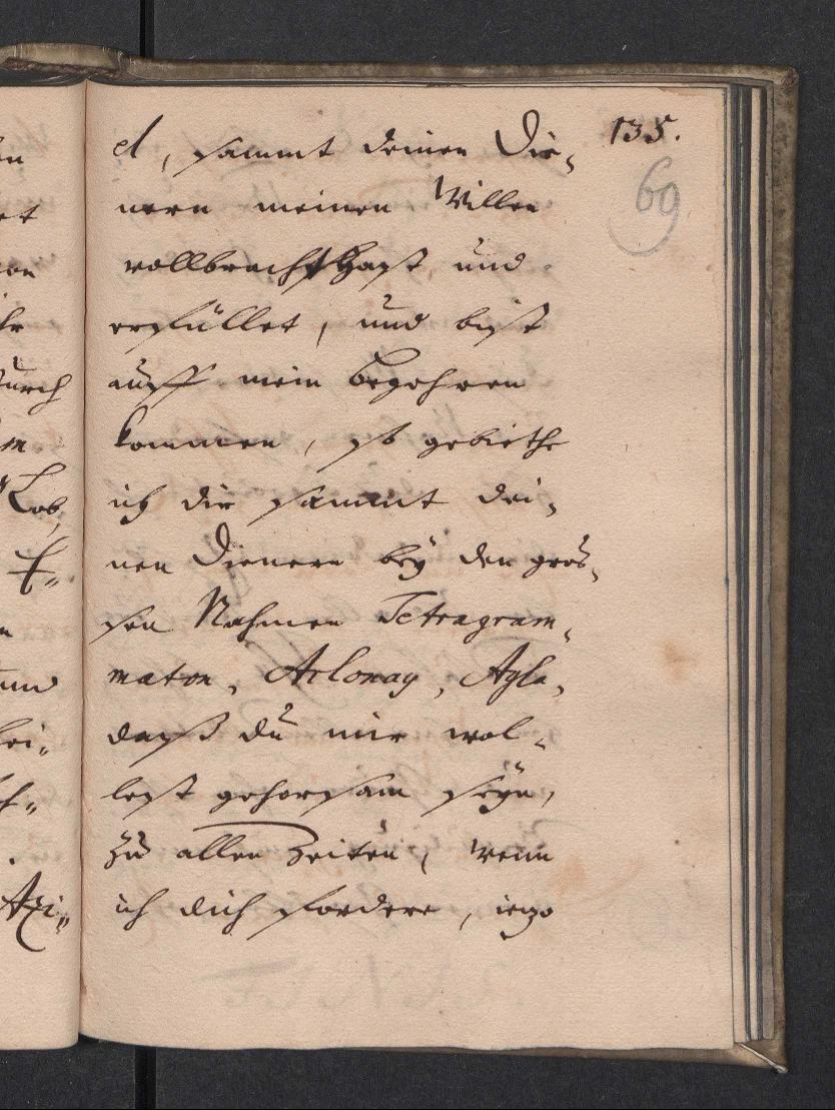 135.
69
el, sammt deinen Die-
nern meinen Willen
vollbracht hast und
erfüllet, und bist
auff mein begehren
kommen, so gebiethe
ich dir sammt dei-
nen Dienern bey den gros-
sen Nahmen Tetragram-
maton, Adonay, Agla,
daß du mir wol-
lest gehorsam seÿn,
zu allen Zeiten, wenn
ich dich fordere, iezo
en
et
durch
m
Lob,
E-
n
und
hei-
Azi-